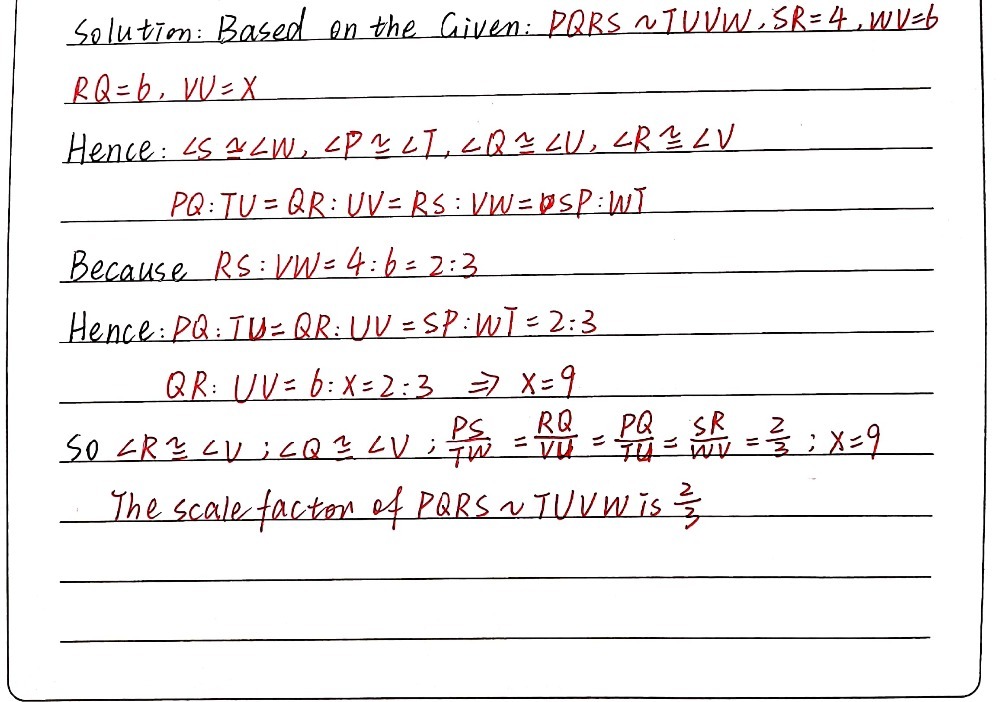 Solution: Based on the Given: PQRS ~ TUVW, SR=4, WV=6
RQ=6, VU=X
Hence: ∠S ≅ ∠W, ∠P ≅ ∠T, ∠Q ≅ ∠U, ∠R ≅ ∠V
PQ:TU = QR:UV = RS:VW = SP:WT
Because RS:VW = 4:6 = 2:3
Hence: PQ:TU = QR:UV = SP:WT = 2:3
QR:UV = 6:x = 2:3 ⇒ x=9
So ∠R ≅ ∠V ; ∠Q ≅ ∠V ; PS/TW = RQ/VU = PQ/TU = SR/WV = 2/3 ; x=9
The scale factor of PQRS ~ TUVW is 2/3